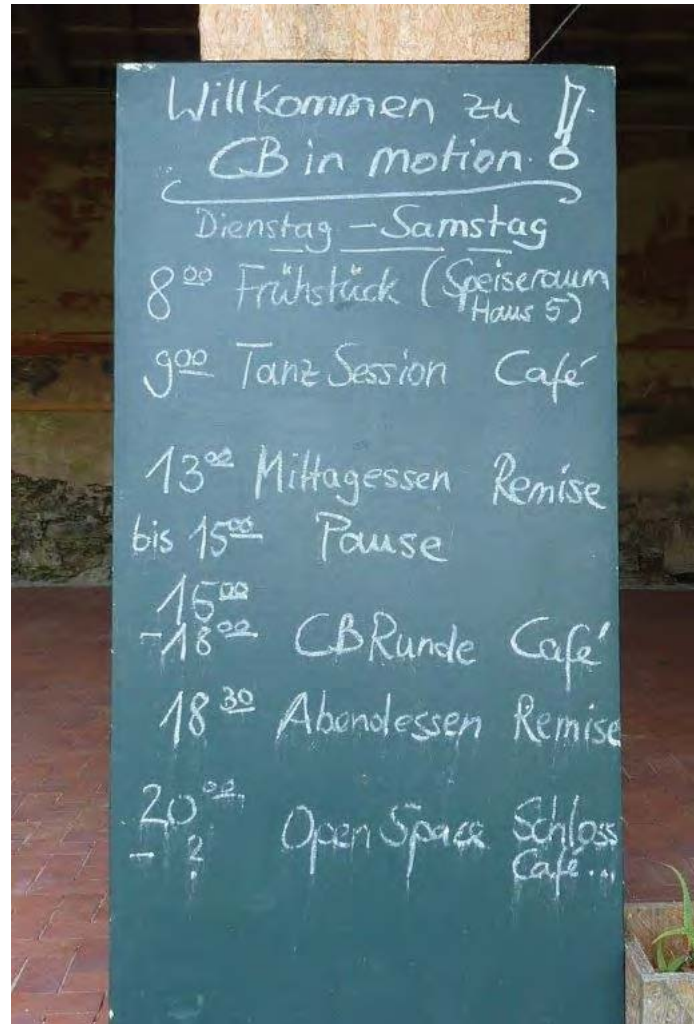 Willkommen zu !
CB in motion
Dienstag – Samstag
8⁰⁰ Frühstück (Speiseraum
Haus 5)
9⁰⁰ Tanz Session Café
13⁰⁰ Mittagessen Remise
bis 15⁰⁰ Pause
15⁰⁰
-18⁰⁰ CB Runde Café
18³⁰ Abendessen Remise
20⁰⁰ Open Space Schloss
- ? Café...